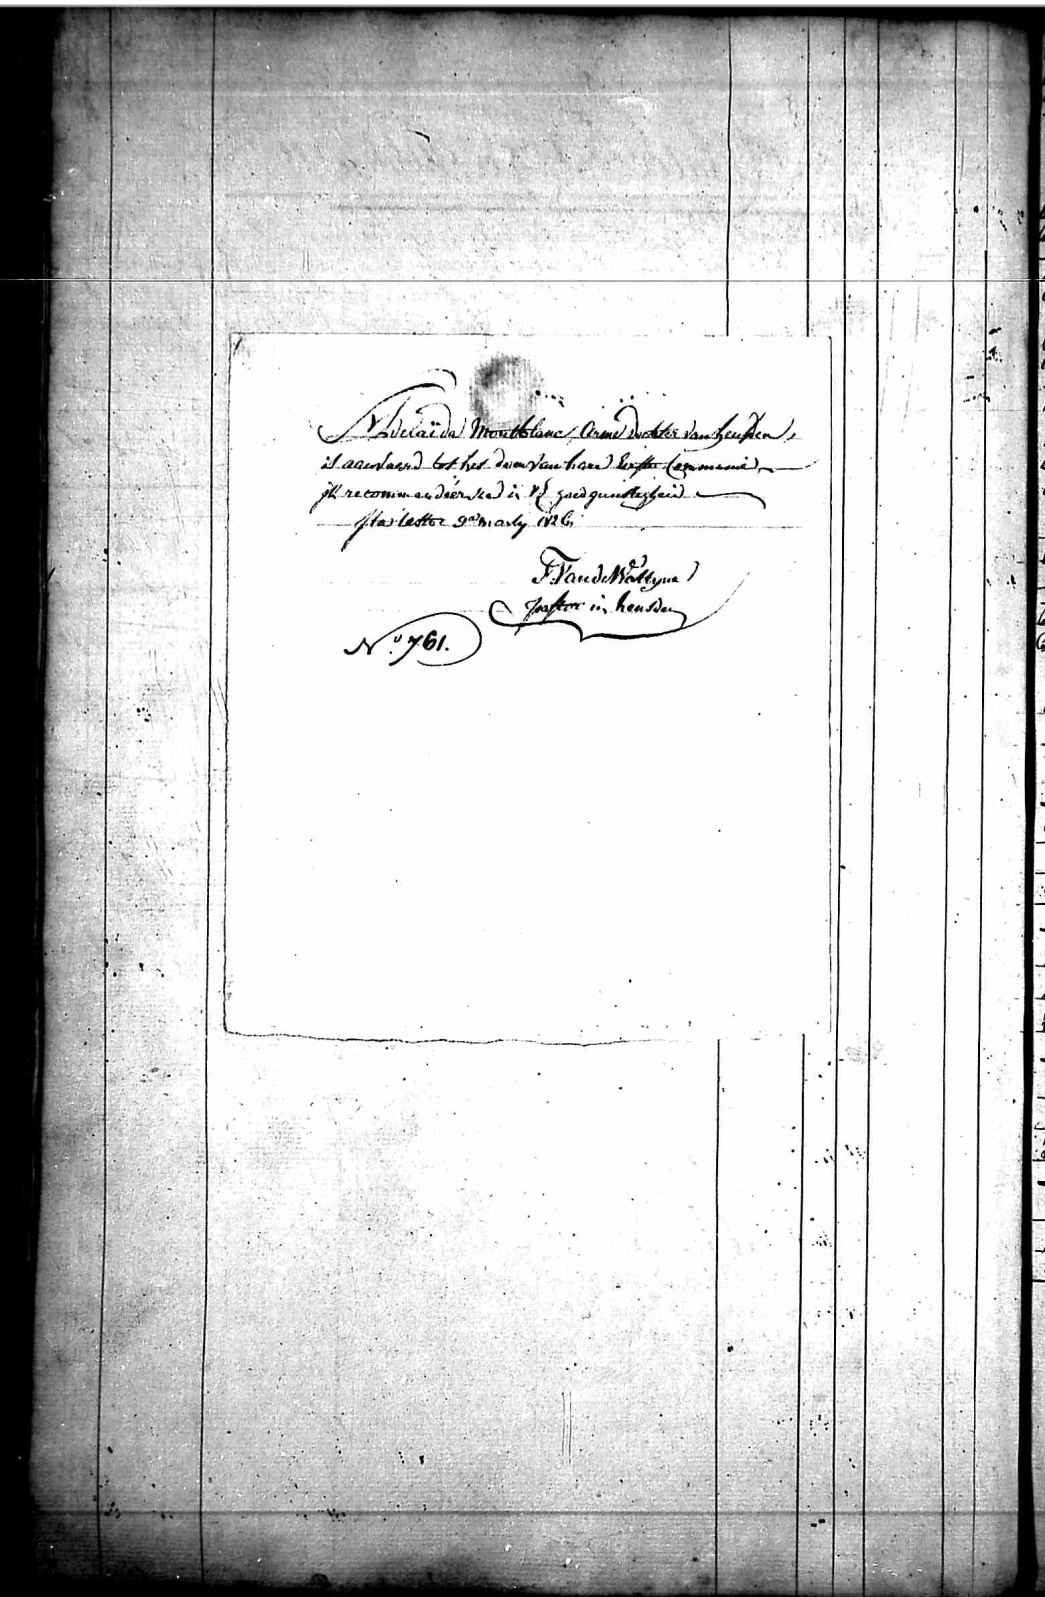 Adelaïda Montblanc, Arme dochter van heusden,
is aanveerd tot het doen van hare Eerste Communie,
ik recommandéer sed in UE goedgunstigheid
9 marty 1826
F. Van de Wattyne
pastor in heusden
N.º 761.